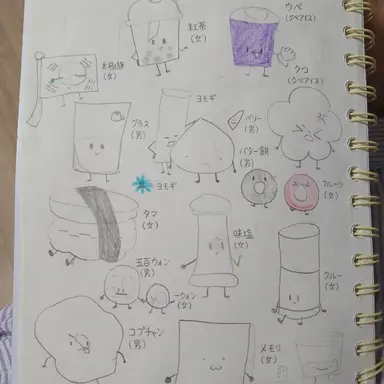 紅茶
(女)
ウベ
(ウベアイス)
太極旗
(女)
ウコ
(ウベアイス)
グラス
(男)
ヨモギ
ベリー
(男)
バター餅
(男)
フルーツ
(女)
ヨモギ
タマ
(女)
味塩
(女)
五百ウォン
(男)
一ウォン
(女)
クルー
(女)
コプチャン
(男)
メモリ
(女)